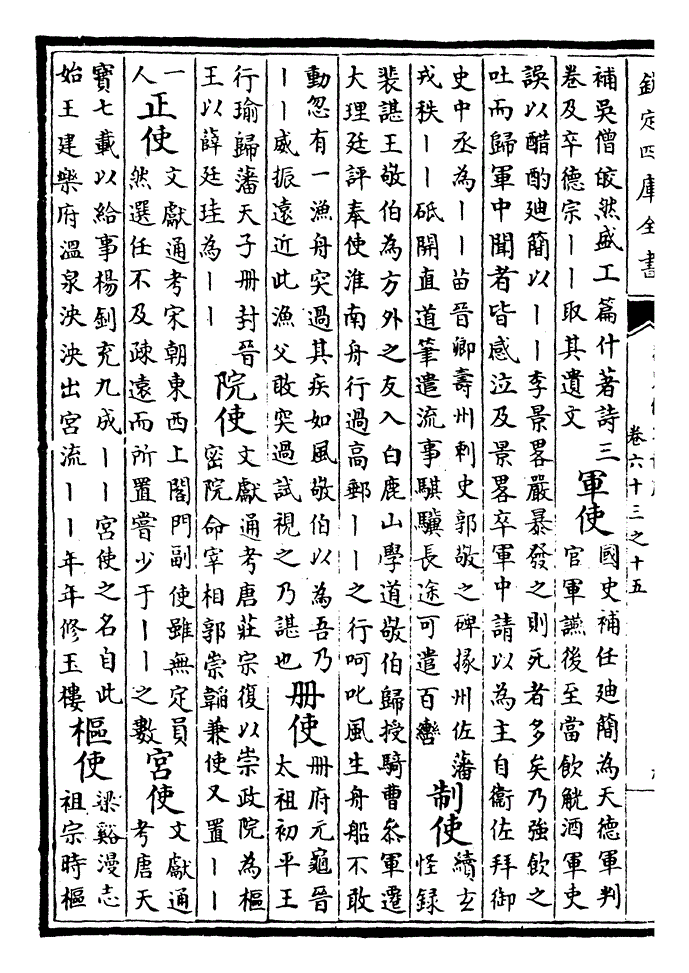 欽定四庫全書
卷六十三之十五
補吳僧皎然盛工篇什著詩三
卷及卒德宗丨丨取其遺文
軍使
國史補任廸簡為天德軍判
官軍讌後至當飲觥酒軍吏
誤以醋酌廸簡以丨丨李景畧嚴暴發之則死者多矣乃強飲之
吐而歸軍中聞者皆感泣及景畧卒軍中請以為主自衞佐拜御
史中丞為丨丨苗晉卿壽州刺史郭敬之碑掾州佐藩
戎秩丨丨砥開直道筆遣流事騏驥長途可遣百轡
制使
續玄
怪録
裴諶王敬伯為方外之友入白鹿山學道敬伯歸授騎曹叅軍遷
大理廷評奉使淮南舟行過高郵丨丨之行呵叱風生舟船不敢
動忽有一漁舟突過其疾如風敬伯以為吾乃
丨丨威振遠近此漁父敢突過試視之乃諶也
册使
册府元龜晉
太祖初平王
行瑜歸藩天子册封晉
王以薛廷珪為丨丨
院使
文獻通考唐莊宗復以崇政院為樞
密院命宰相郭崇韜兼使又置丨丨
一
人
正使
文獻通考宋朝東西上閤門副使雖無定員
然選任不及疎遠而所置嘗少于丨丨之數
宮使
文獻通
考唐天
寳七載以給事楊釗充九成丨丨宮使之名自此
始王建樂府溫泉泱泱出宮流丨丨年年修玉樓
樞使
梁谿漫志
祖宗時樞